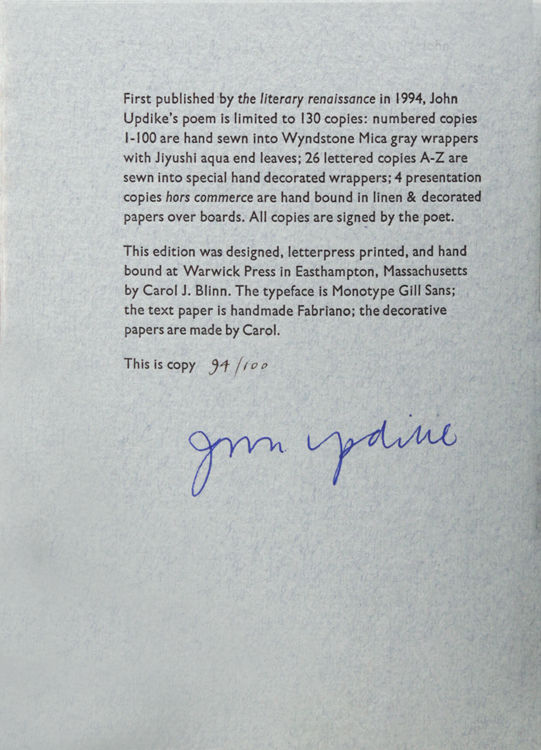 First published by the literary renaissance in 1994, John
Updike's poem is limited to 130 copies: numbered copies
1-100 are hand sewn into Wyndstone Mica gray wrappers
with Jiyushi aqua end leaves; 26 lettered copies A-Z are
sewn into special hand decorated wrappers; 4 presentation
copies hors commerce are hand bound in linen & decorated
papers over boards. All copies are signed by the poet.
This edition was designed, letterpress printed, and hand
bound at Warwick Press in Easthampton, Massachusetts
by Carol J. Blinn. The typeface is Monotype Gill Sans;
the text paper is handmade Fabriano; the decorative
papers are made by Carol.
This is copy 94/100
John Updike